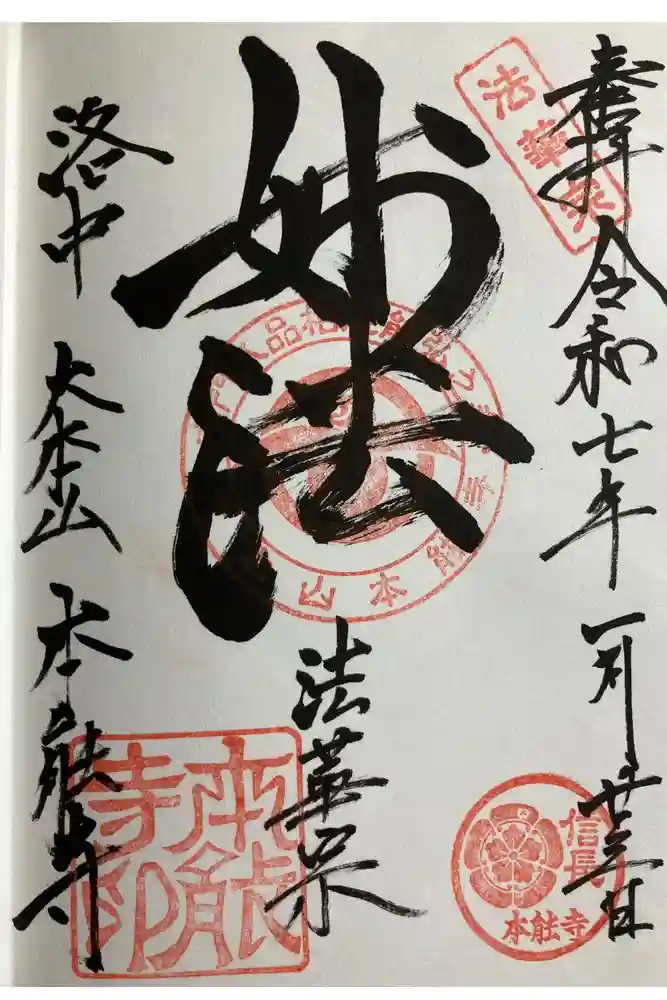 奉拝 令和七年 一月廿三日
法華宗
妙法
法華宗
洛中 大本山 本能寺
本能寺印
信長
本能寺